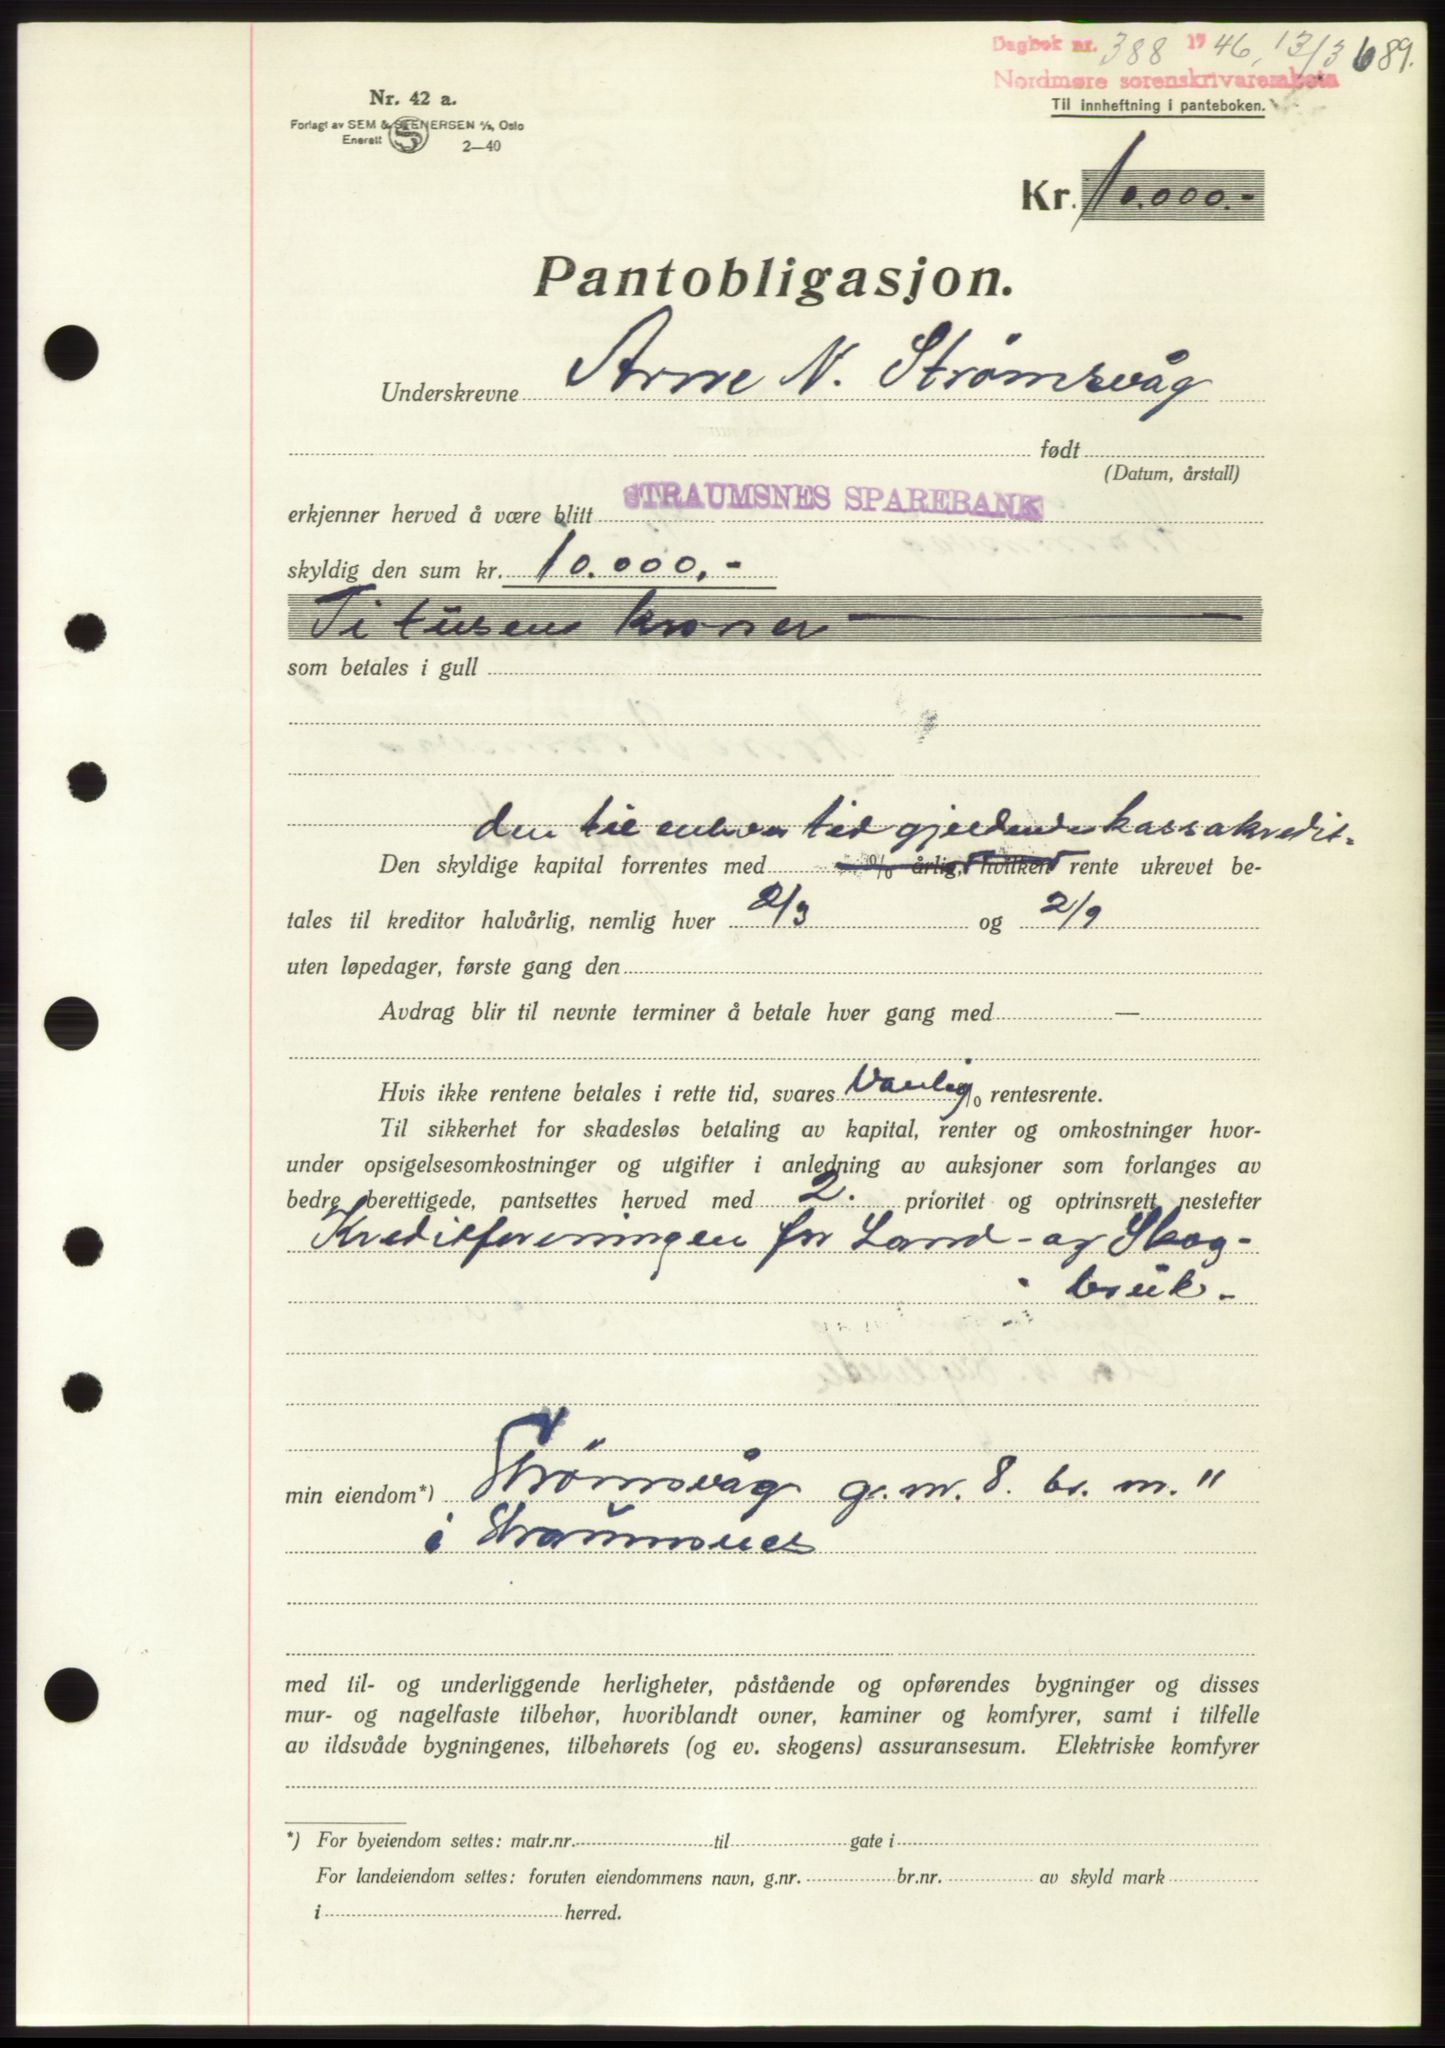 Dagbok nr. 388 1946, 13/3 689.
Nordmøre sorenskrivarembete
Til innheftning i panteboken.
Nr. 42 a.
Forlagt av SEM & STENERSEN A/S, Oslo
Enerett 2—40
Kr. 10.000.-
Pantobligasjon.
Underskrevne Arne N. Strømsvåg
født
(Datum, årstall)
erkjenner herved å være blitt STRAUMSNES SPAREBANK
skyldig den sum kr. 10.000,-
Ti tusen kroner
som betales i gull
den til enhver tid gjeldende kassakredit-
Den skyldige kapital forrentes med % årlig, hvilken rente ukrevet be-
tales til kreditor halvårlig, nemlig hver 2/3 og 2/9
uten løpedager, første gang den
Avdrag blir til nevnte terminer å betale hver gang med —
Hvis ikke rentene betales i rette tid, svares Vanlig % rentesrente.
Til sikkerhet for skadesløs betaling av kapital, renter og omkostninger hvor-
under opsigelsesomkostninger og utgifter i anledning av auksjoner som forlanges av
bedre berettigede, pantsettes herved med 2. prioritet og optrinsrett nestefter
Kreditforeningen for Land- og Skog-
bruk.
min eiendom*) Strømsvåg g.nr. 8. br. nr. 11
i Straumsnes
med til- og underliggende herligheter, påstående og opførendes bygninger og disses
mur- og nagelfaste tilbehør, hvoriblandt ovner, kaminer og komfyrer, samt i tilfelle
av ildsvåde bygningenes, tilbehørets (og ev. skogens) assuransesum. Elektriske komfyrer
*) For byeiendom settes: matr.nr. til gate i
For landeiendom settes: foruten eiendommens navn, g.nr. br.nr. av skyld mark
i herred.